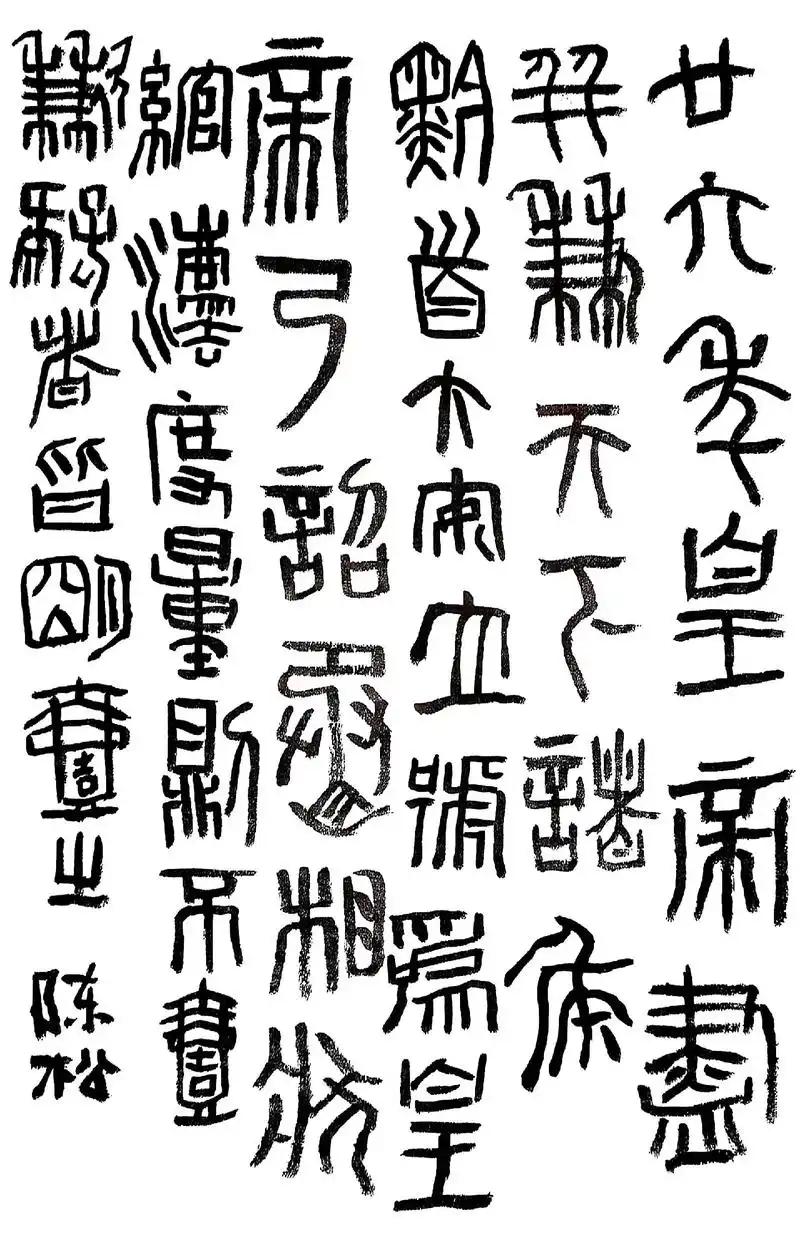 廿六年皇帝盡
并兼天下諸侯
黔首大安立號為皇
帝乃詔丞相狀
綰灋度量則不壹
歉疑者皆明壹之
陈松